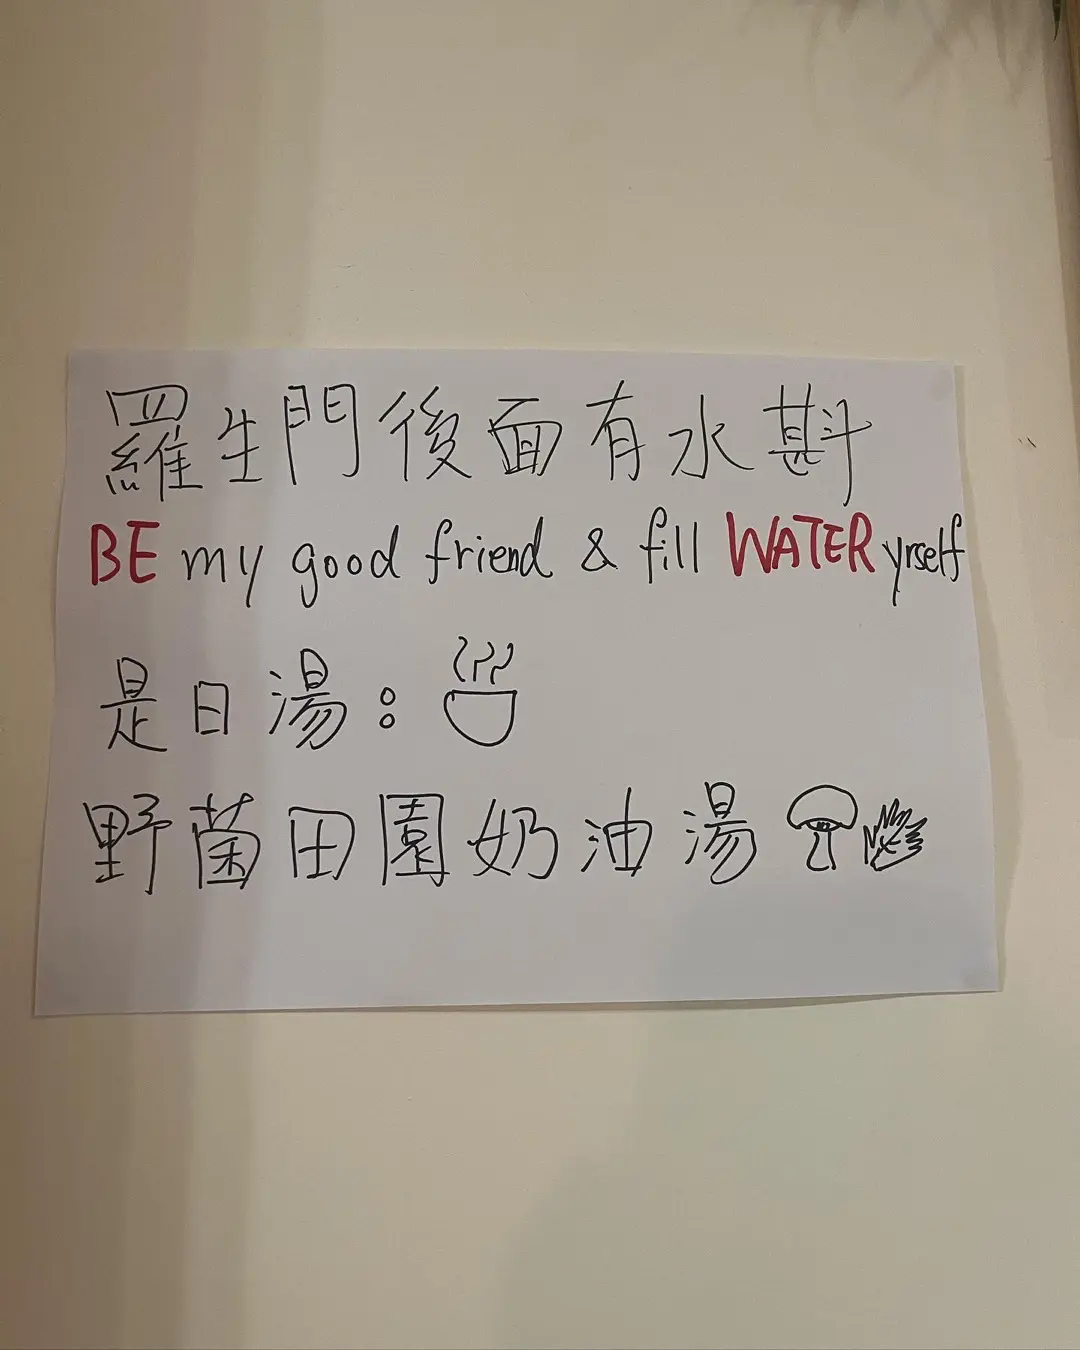 羅生門後面有水斟
BE my good friend & fill WATER yrself
是日湯:
野菌田園奶油湯